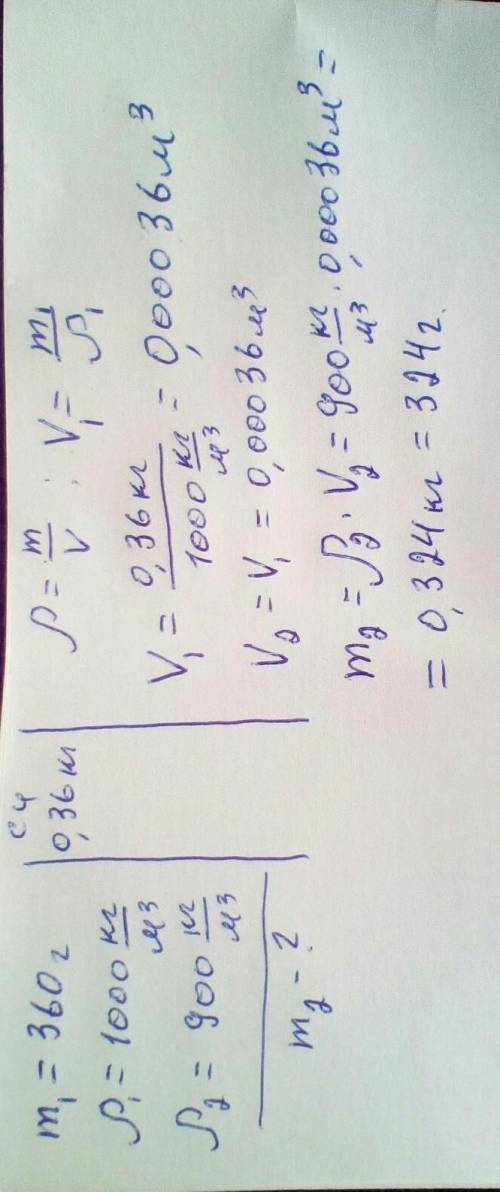 m₁ = 360 г
ρ₁ = 1000 кг/м³
ρ₂ = 900 кг/м³
m₂ - ?
СИ
0,36 кг
ρ = m/V ; V₁ = m₁/ρ₁
V₁ = 0,36 кг / 1000 кг/м³ = 0,00036 м³
V₂ = V₁ = 0,00036 м³
m₂ = ρ₂ · V₂ = 900 кг/м³ · 0,00036 м³ =
= 0,324 кг = 324 г.